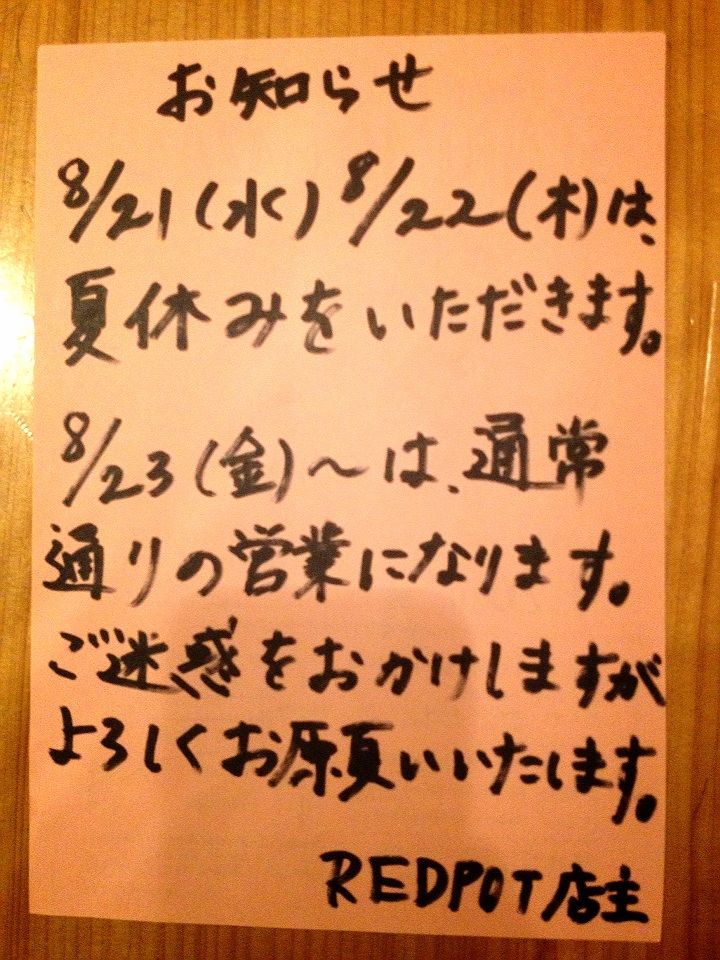 お知らせ
8/21(水)8/22(木)は、
夏休みをいただきます。
8/23(金)～は、通常
通りの営業になります。
ご迷惑をおかけしますが
よろしくお願いいたします。
REDPOT店主